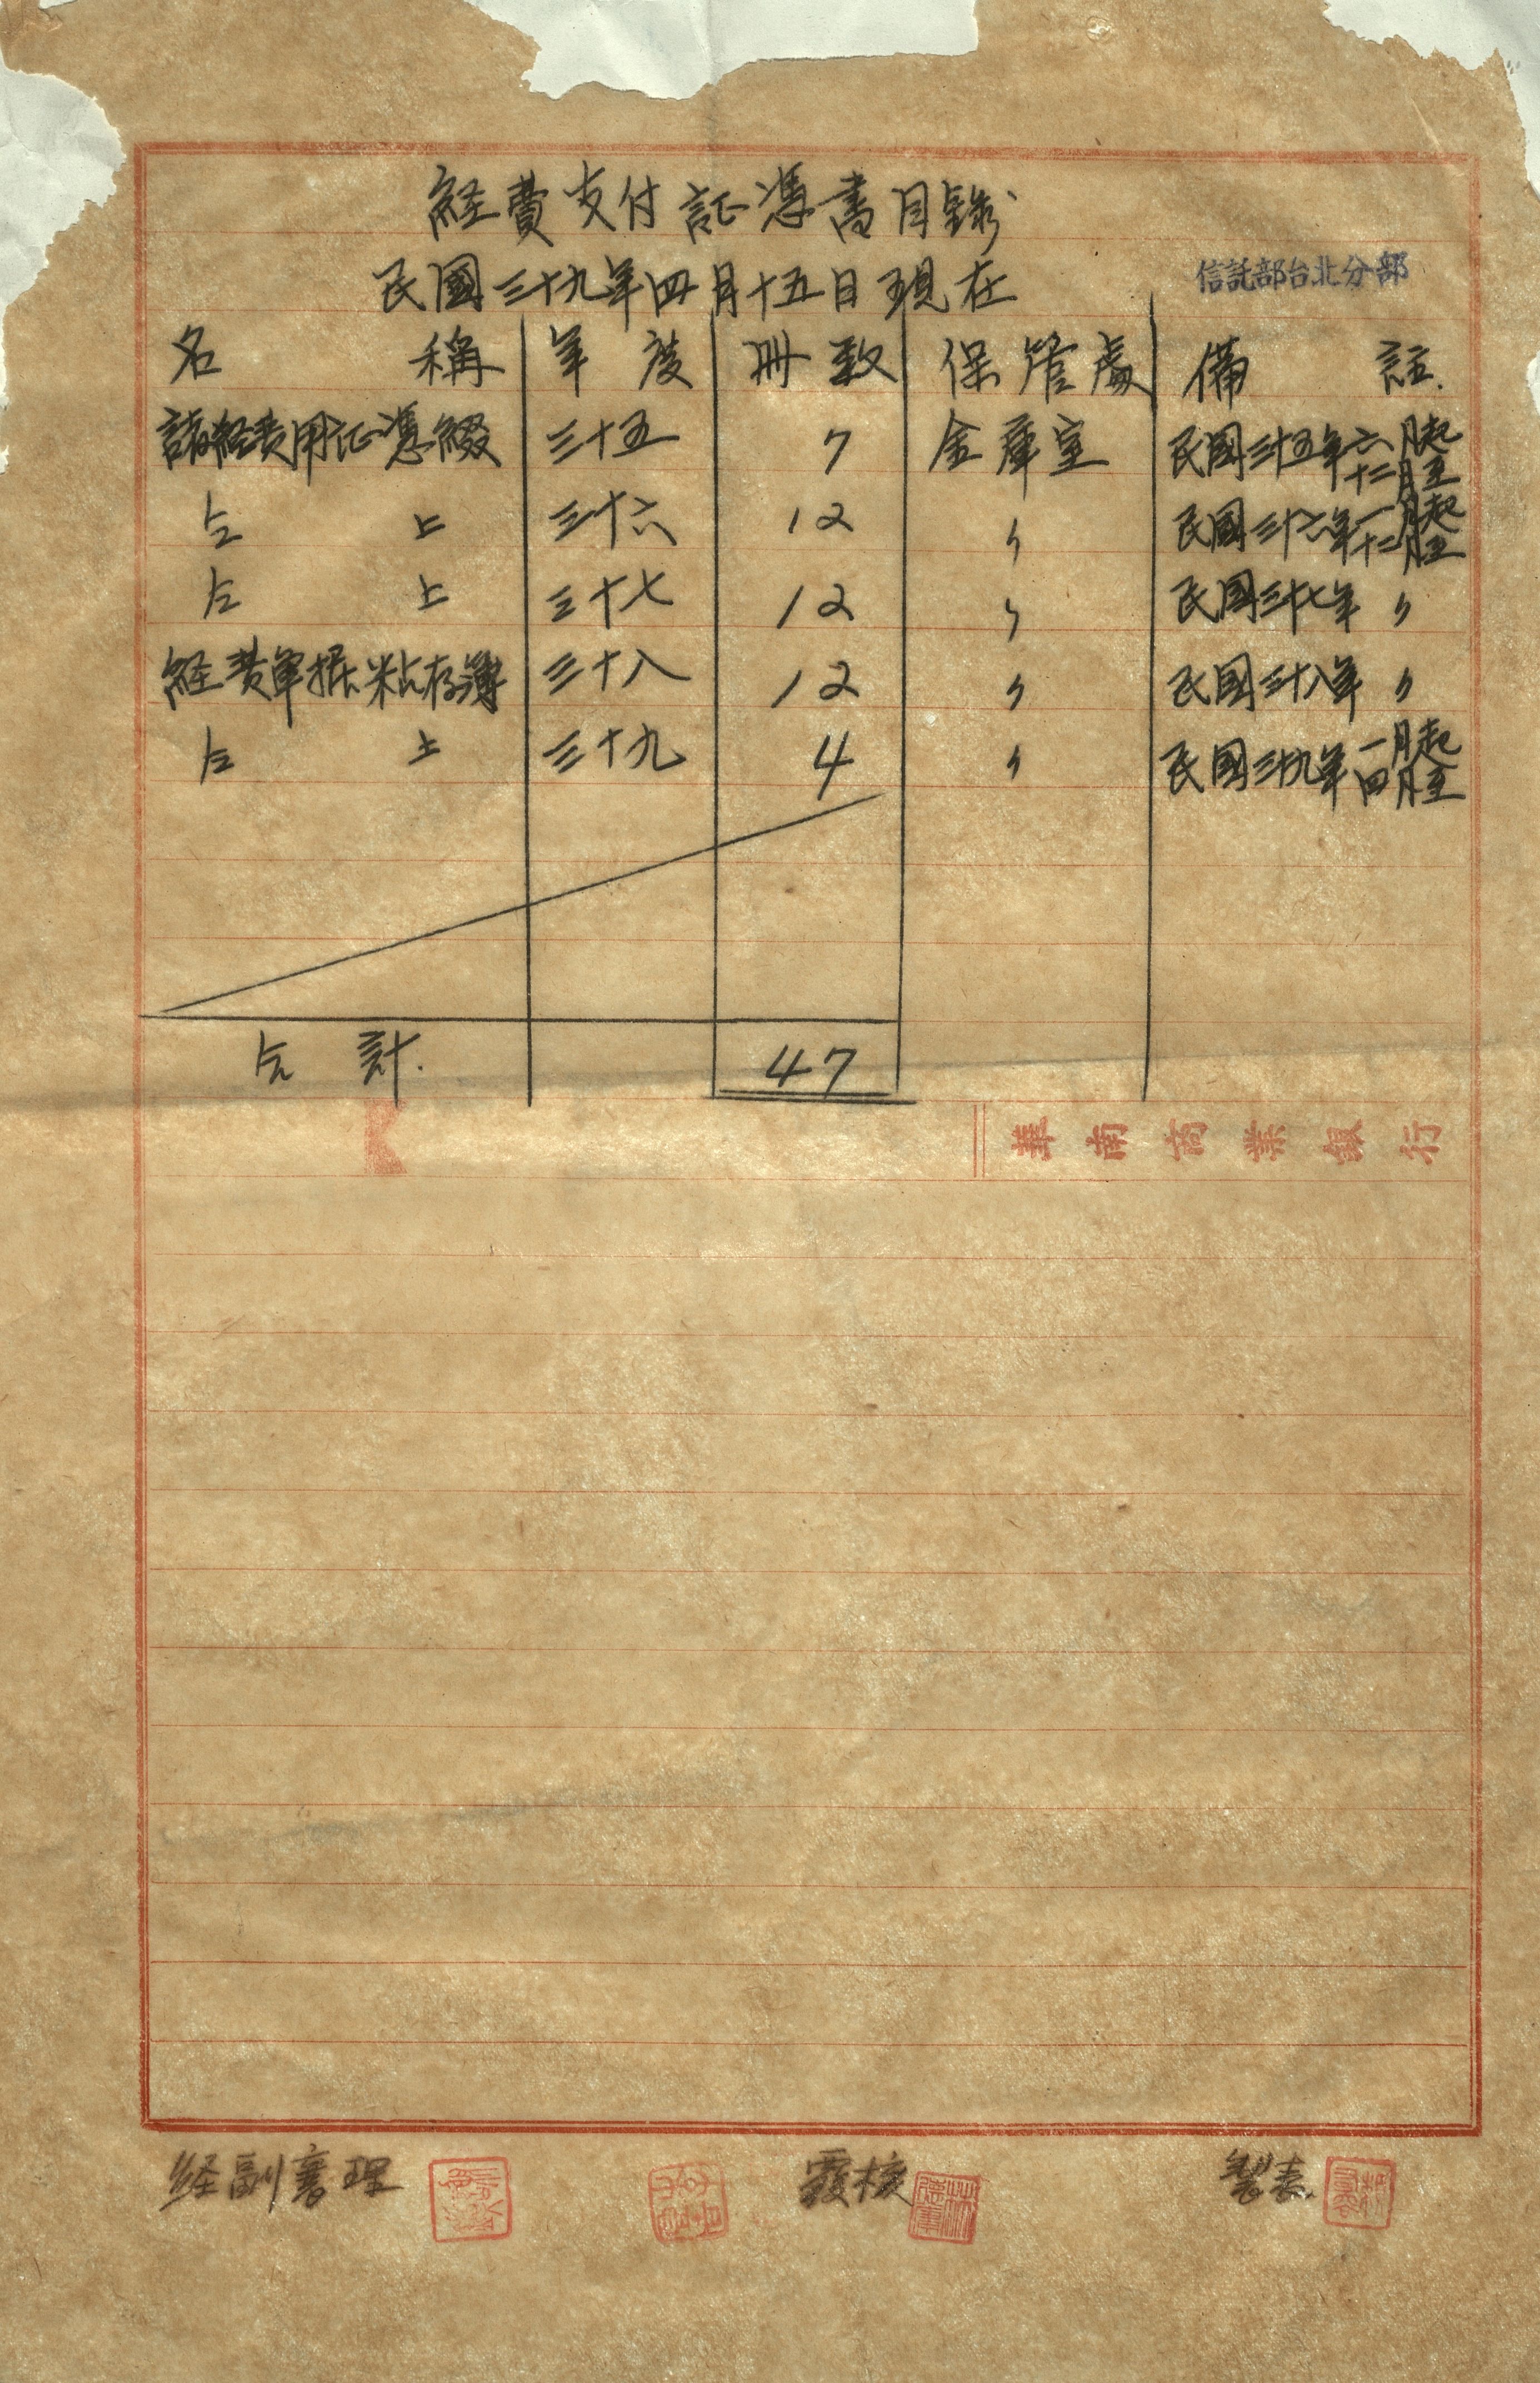 経費支付証憑書目錄
民國三十九年四月十五日現在
信託部台北分部
名稱 年度 冊数 保管處 備註.
諸経費用証憑綴 三十五 7 金庫室 民國三十五年六月起十二月至
仝上 三十六 12 〃 民國三十六年一月起十二月至
仝上 三十七 12 〃 民國三十七年 〃
経费单据粘存簿 三十八 12 〃 民國三十八年 〃
仝上 三十九 4 〃 民國三十九年一月起四月至
合計. 47
華南商業銀行
経副襄理 覆核 製表.